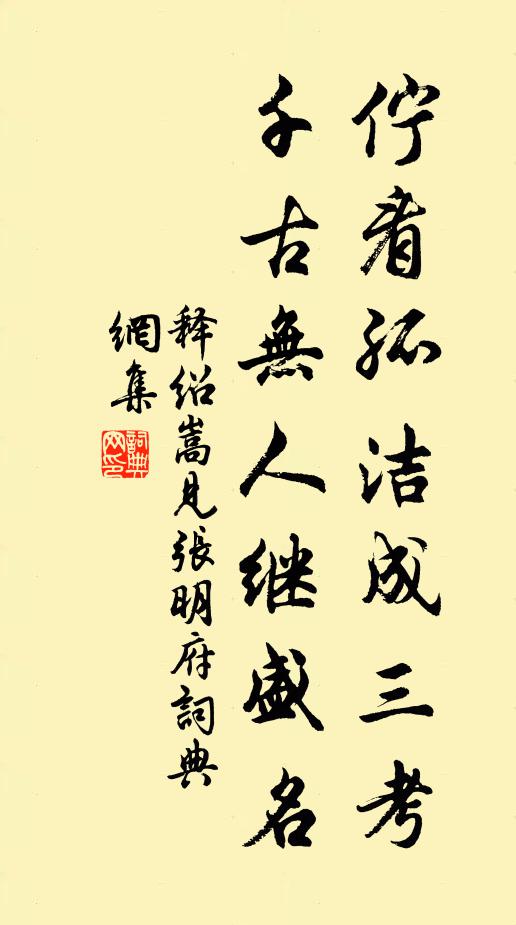 佇看孤洁成三考
千古無人继盛名
释绍嵩見張明府詞典
網集
詞典
网印